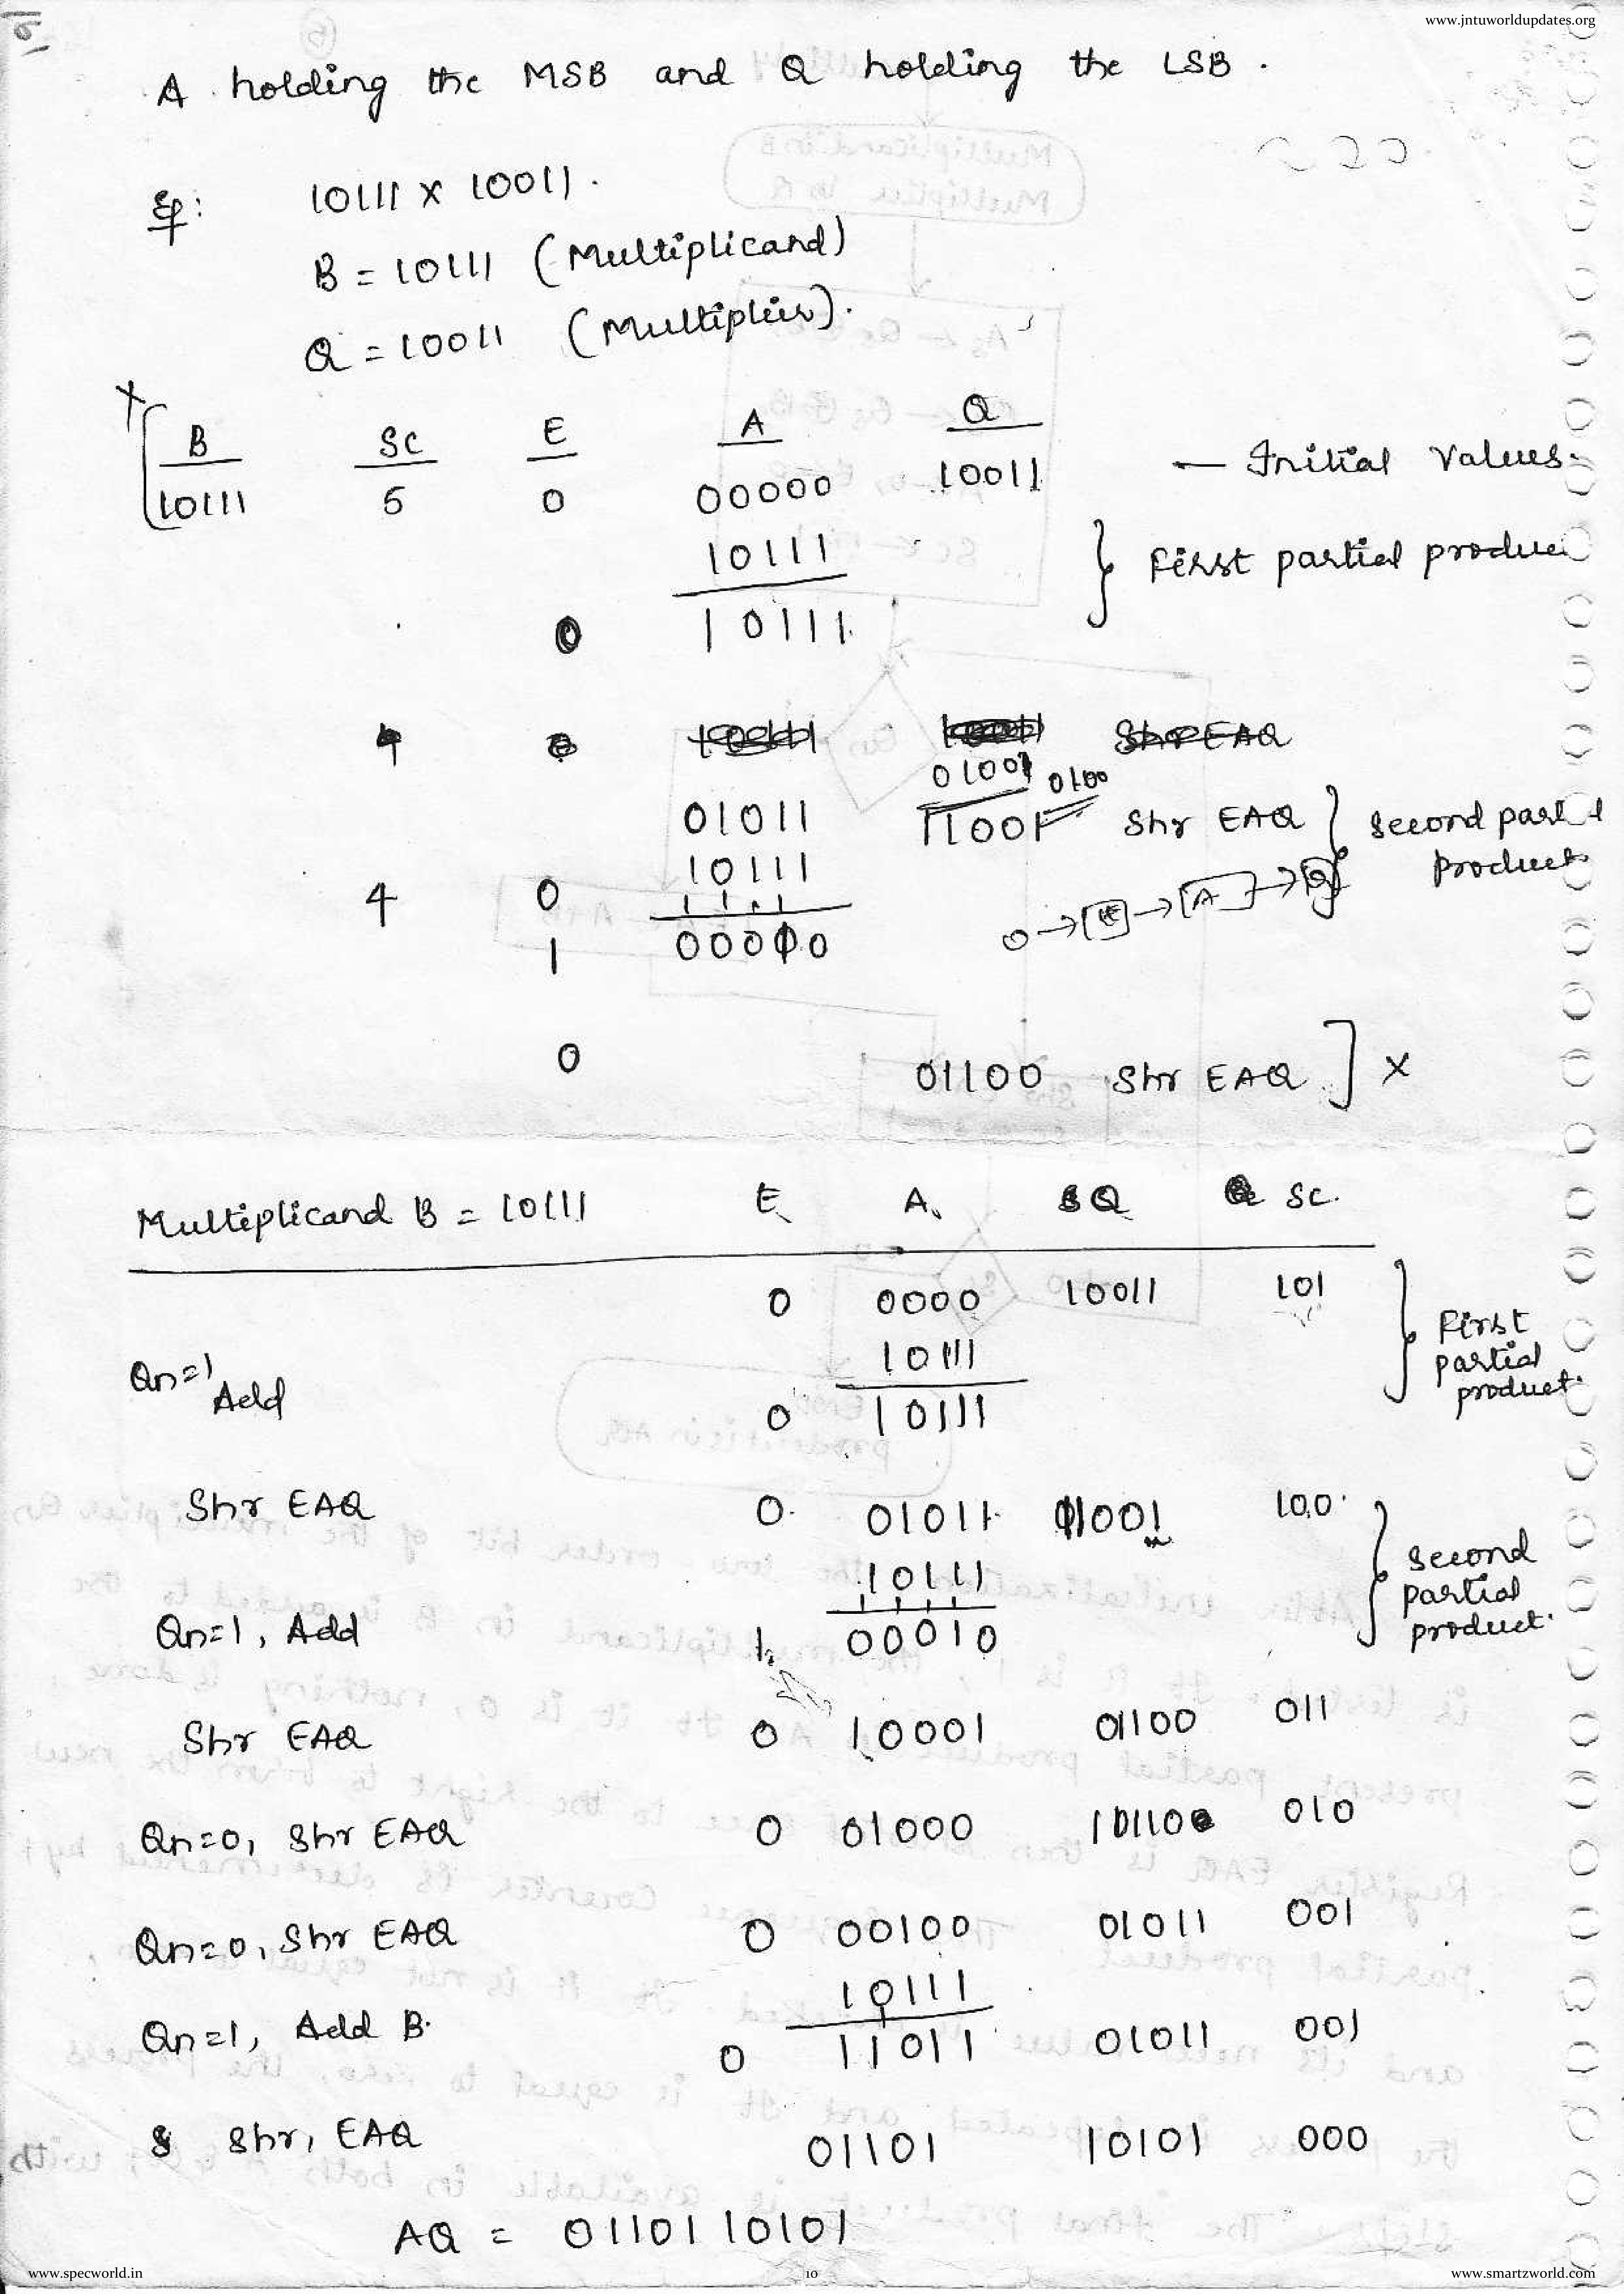 www.jntuworldupdates.org
A holding the MSB and Q holding the LSB.
Eg: 10111 X 10011.
B = 10111 (Multiplicand)
Q = 10011 (Multiplier).
B SC E A Q
10111 5 0 00000 10011 — Initial Values.
10111 First partial produc
0 10111
4 Shr EAQ
01001 0100
01011 11001 Shr EAQ second part
10111 product
4 0
0 → E → A → Q
1 00010
0 01100 Shr EAQ ] X
Multiplicand B = 10111 E A Q SC.
0 0000 10011 101 First
10111 partial
Qn=1 Add 0 10111 product.
Shr EAQ 0 01011 11001 100 second
10111 partial
Qn=1, Add 1 00010 product.
Shr EAQ 0 10001 01100 011
Qn=0, Shr EAQ 0 01000 10110 010
Qn=0, Shr EAQ 0 00100 01011 001
10111
Qn=1, Add B. 0 11011 01011 001
Shr, EAQ 01101 10101 000
AQ = 0110110101
www.specworld.in
10
www.smartzworld.com